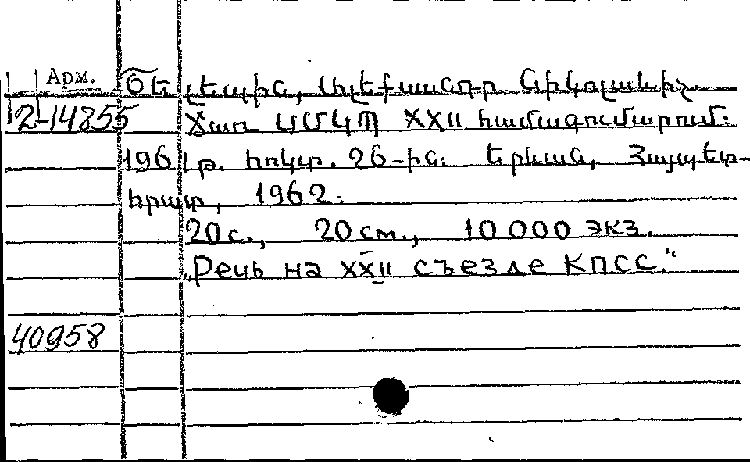 Арм. Շելեպին, Ալեքսանդր Նիկոլաևիչ.
2-14855 Ճառ ՍՄԿՊ XXII համագումարում:
1961 թ. հոկտ. 26-ին: Երևան, Հայպետ-
հրատ, 1962:
20с., 20см., 10 000 экз.
„Речь на XXII съезде КПСС."
40958